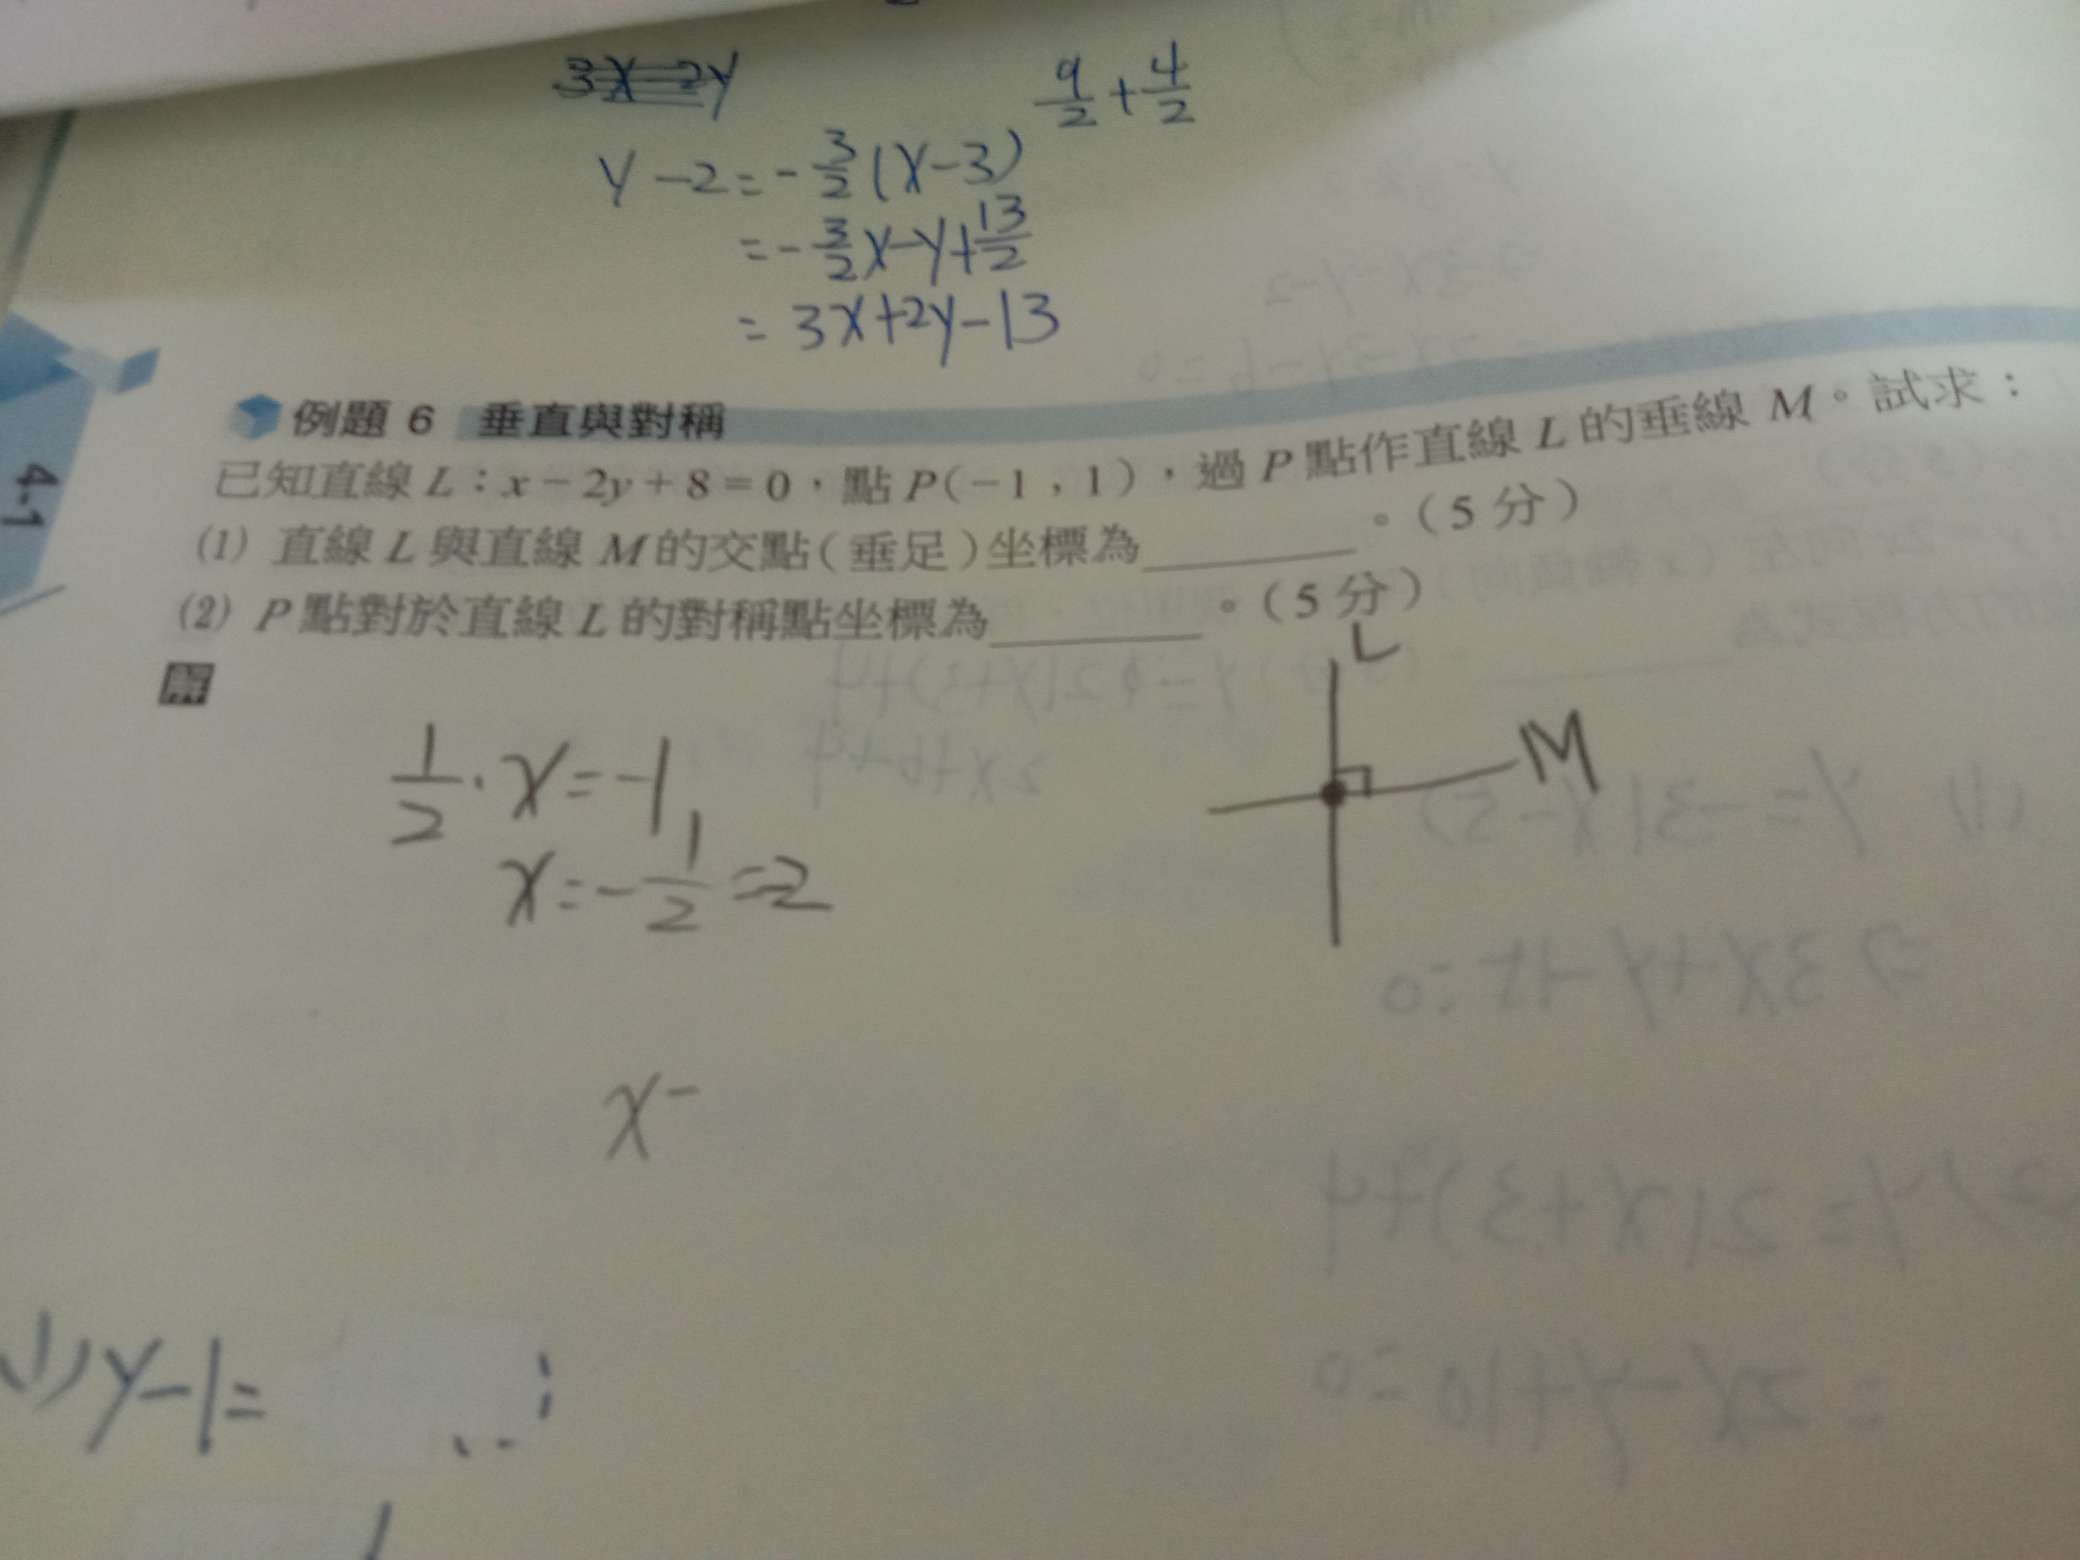 3x-2y
9/2 + 4/2
y-2=-3/2(x-3)
=-3/2x-y+13/2
= 3x+2y-13
4-1
例題 6 垂直與對稱
已知直線 L：x－2y＋8＝0，點 P(－1，1)，過 P 點作直線 L 的垂線 M。試求：
(1) 直線 L 與直線 M 的交點(垂足)坐標為＿＿＿＿。(5 分)
(2) P 點對於直線 L 的對稱點坐標為＿＿＿＿。(5 分)
解
L
M
1/2 · x = -1
x = - 1/2 = 2
x -
(1) y-1=